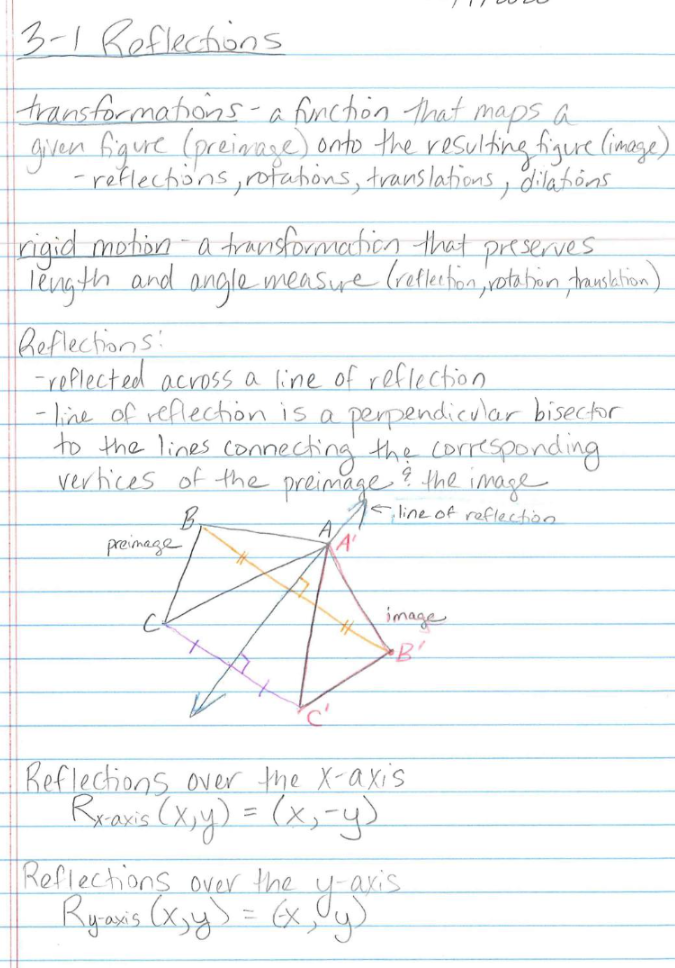 3-1 Reflections
transformations - a function that maps a
given figure (preimage) onto the resulting figure (image)
- reflections, rotations, translations, dilations
rigid motion - a transformation that preserves
length and angle measure (reflection, rotation, translation)
Reflections:
- reflected across a line of reflection
- line of reflection is a perpendicular bisector
to the lines connecting the corresponding
vertices of the preimage & the image
← line of reflection
B
A
A'
preimage
C
image
B'
C'
Reflections over the x-axis
Rx-axis (x,y) = (x,-y)
Reflections over the y-axis
Ry-axis (x,y) = (-x, y)